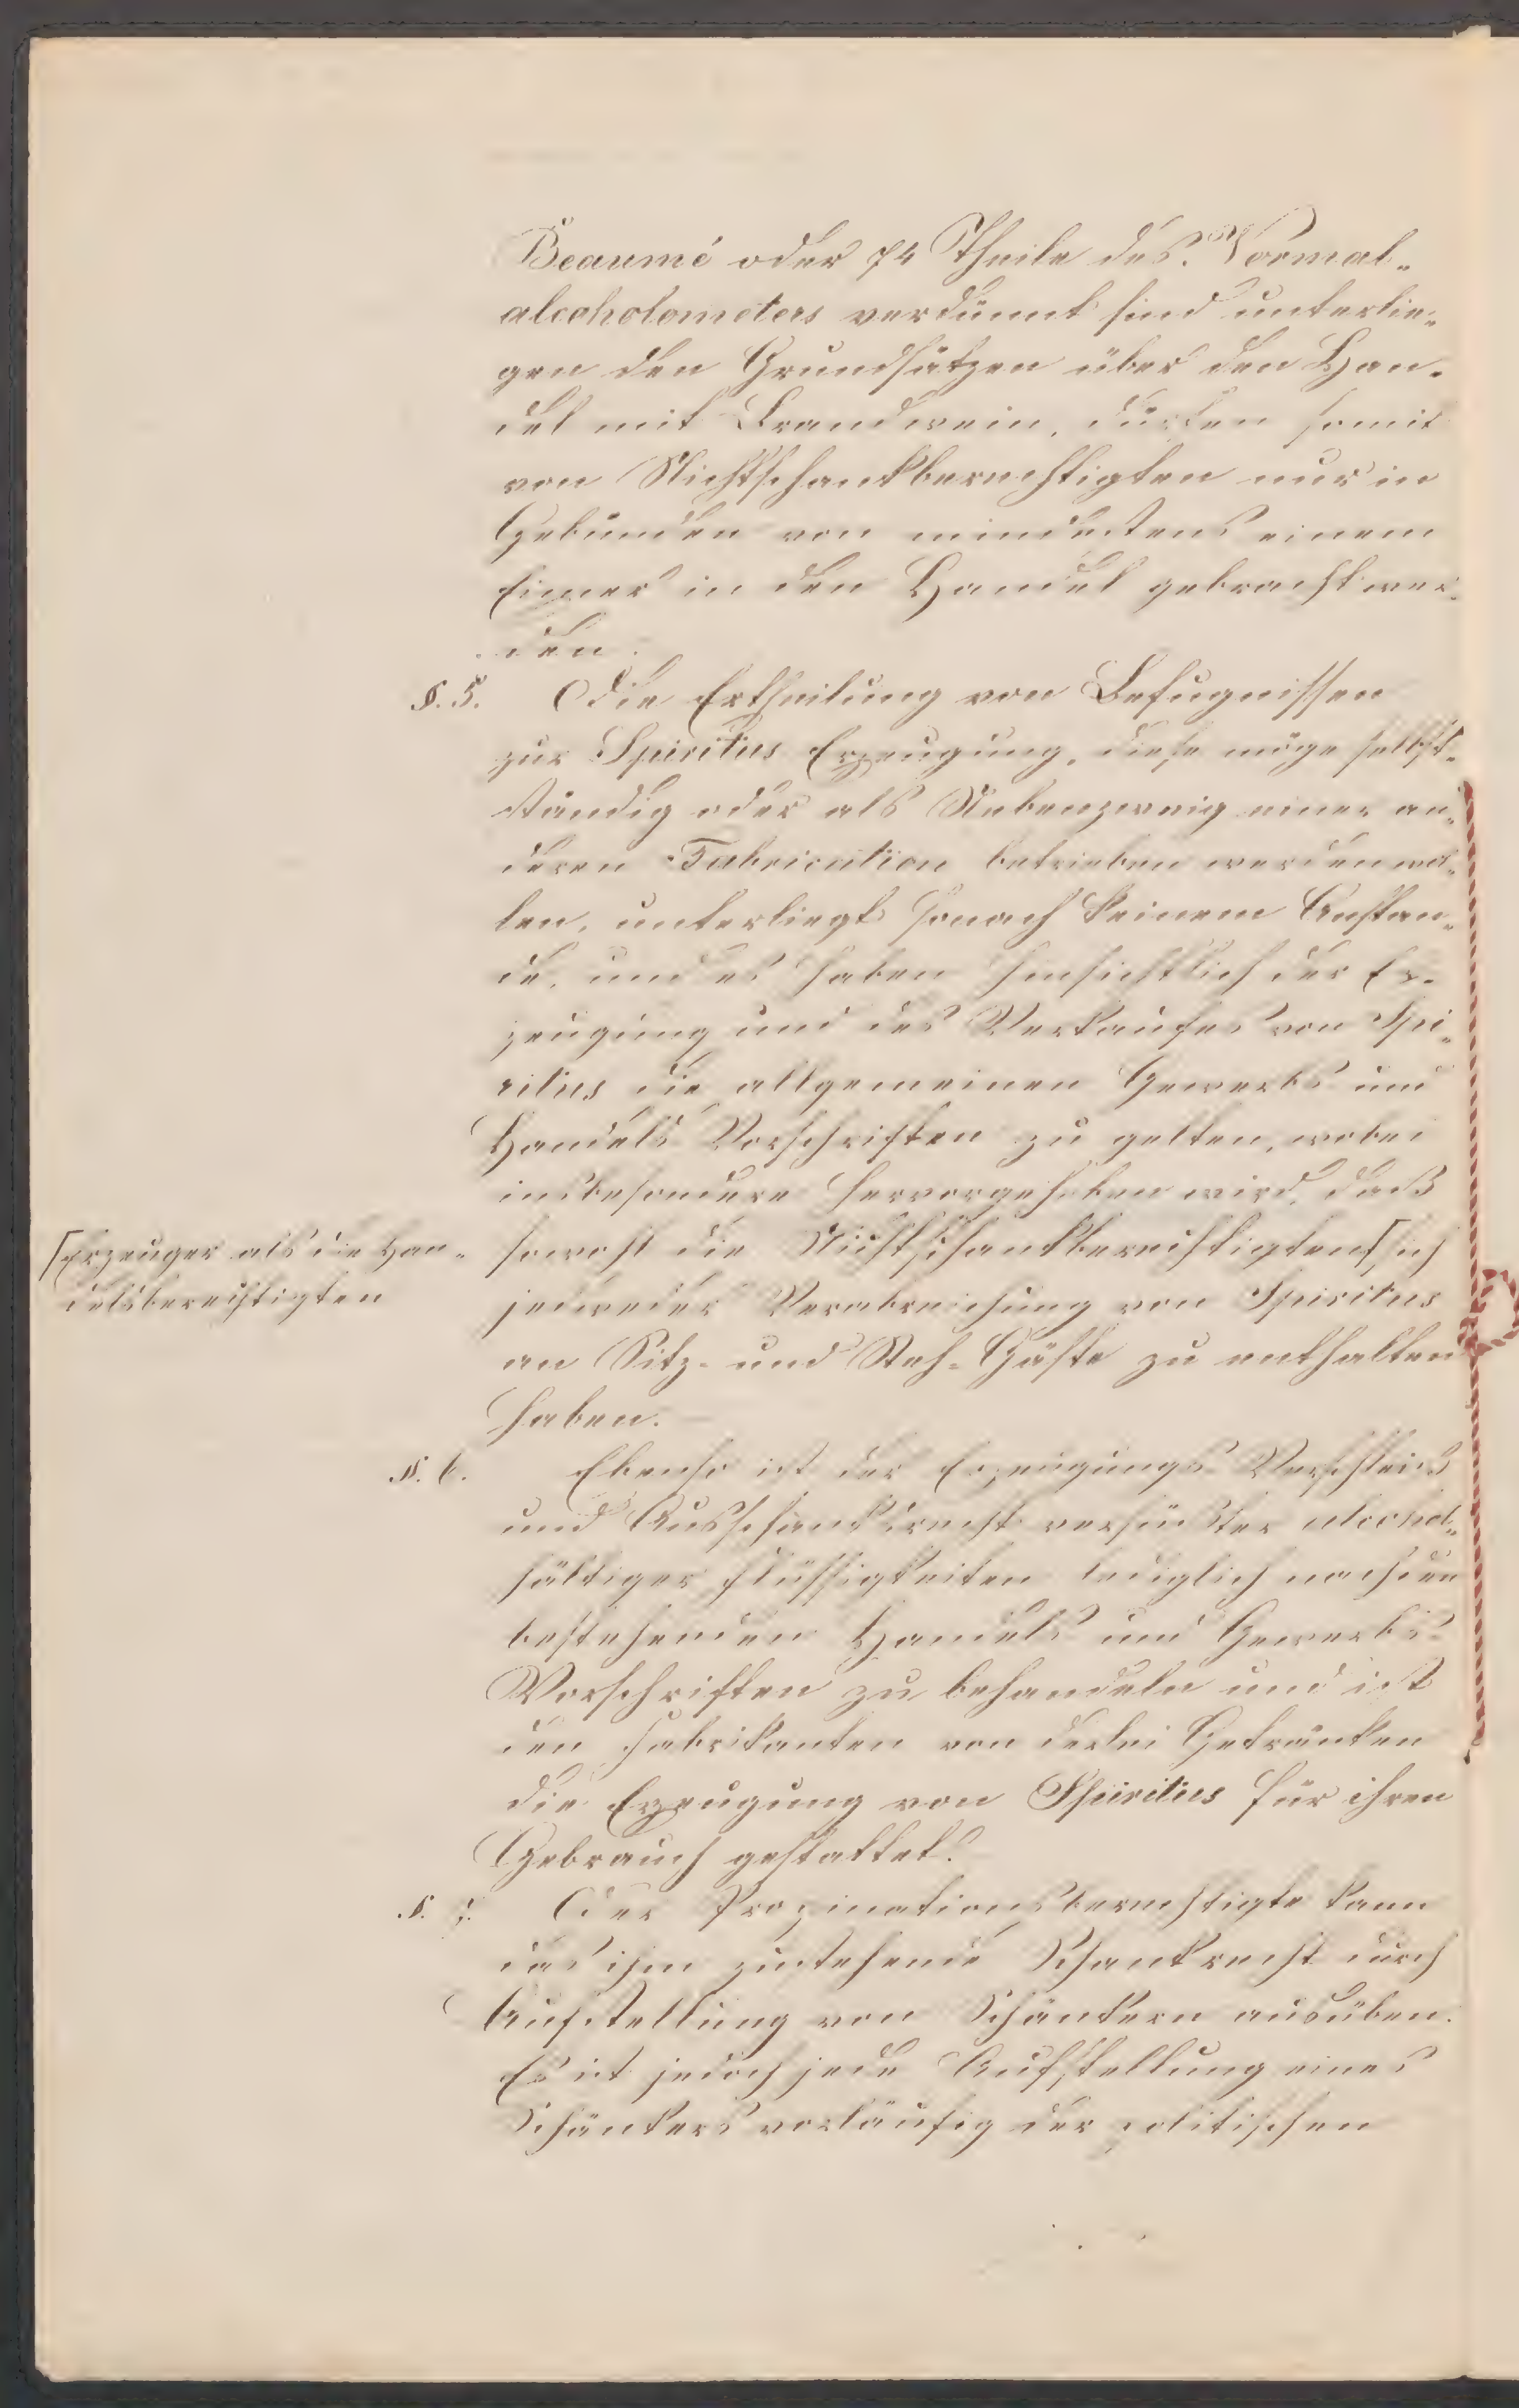 Beaumé oder 74 Theile des Normal-
alcoholometers verdünnt sind unterlie-
gen den Grundsätzen über den Han-
del mit Brandwein, dürfen somit
von Nichtschankberechtigten nur in
Gebünden von mindestens einem
Eimer in den Handel gebracht wer-
den.
§. 5. Die Ertheilung von Befugnissen
zur Spiritus Erzeugung, diese möge selbst-
ständig oder als Nebenzweig einer an-
deren Fabrication betrieben werden wol-
len, unterliegt sonach keinem Anstan-
de, und es haben hinsichtlich der Er-
zeugung und des Verkaufes von Spi-
ritus die allgemeinen Gewerbs und
Handels Vorschriften zu gelten, wobei
insbesondere hervorgehoben wird, daß
sowohl die Nichtschankberechtigten⌈sich
⌈Erzeuger als die Han-
delsberechtigten
jedweder Verabreichung von Spiritus
an Sitz- und Steh-Gäste zu enthalten
haben.
§. 6. Ebenso ist das Erzeugungs Verschleiß
und Ausschanksrecht versüßter alcohol-
hältiger Flüssigkeiten lediglich nach den
bestehenden Handels und Gewerbs-
Vorschriften zu behandeln und ist
den Fabrikanten von derlei Getränken
die Erzeugung von Spiritus für ihren
Gebrauch gestattet.
§. 7. Der Propinationsberechtigte kann
das ihm zustehende Schankrecht durch
Aufstellung von Schänkern ausüben.
Es ist jedoch jede Aufstellung eines
Schänkers vorläufig der politischen